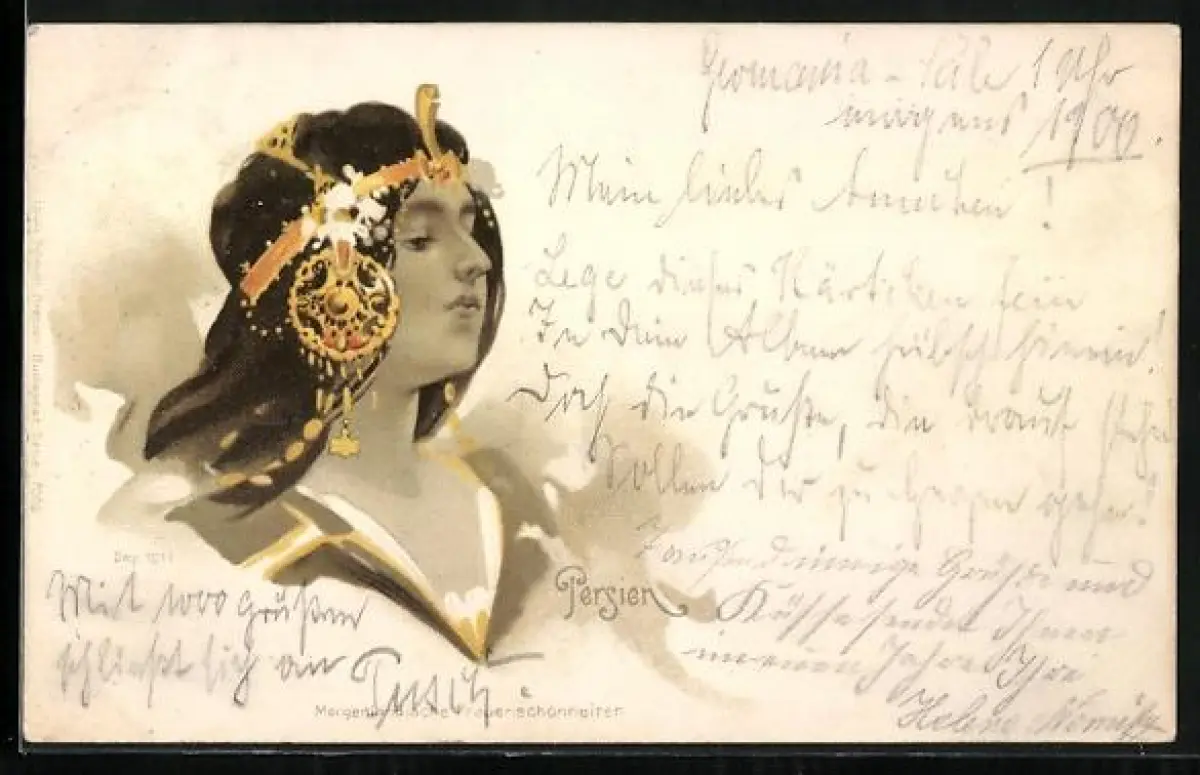 Germania-Säle 1 Uhr
morgens 1900.
Mein liebes Annchen!
Lege dieses Kärtchen fein
In Dein Album hübsch hinein!
Doch die Grüße, die drauf stehn
Sollen Dir zu Herzen gehn!
Tausend innige Grüße und
Küsse sendet Ihnen
im neuen Jahre Ihre
Helene
Persien
Mit 1000 Grüßen
schließt sich an
Morgenländische Frauenschönheiten